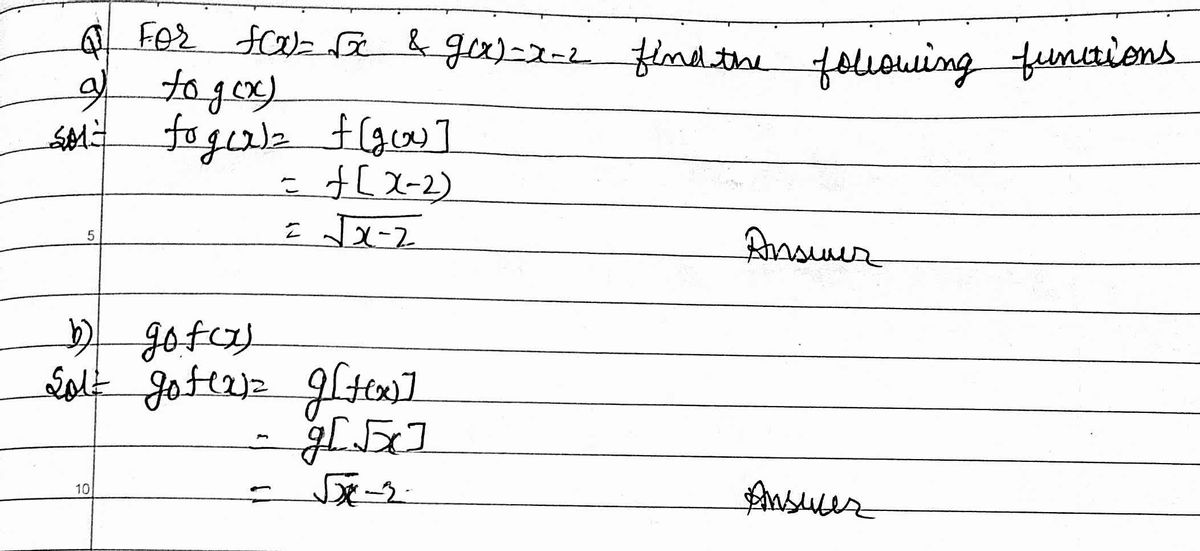 Q For f(x)=√x & g(x)=x-2 find the following functions
a) fog(x)
Sol:- fog(x)= f[g(x)]
= f[x-2)
5 = √x-2 Answer
b) gof(x)
Sol:- gof(x)= g[f(x)]
= g[√x]
10 = √x-2 Answer